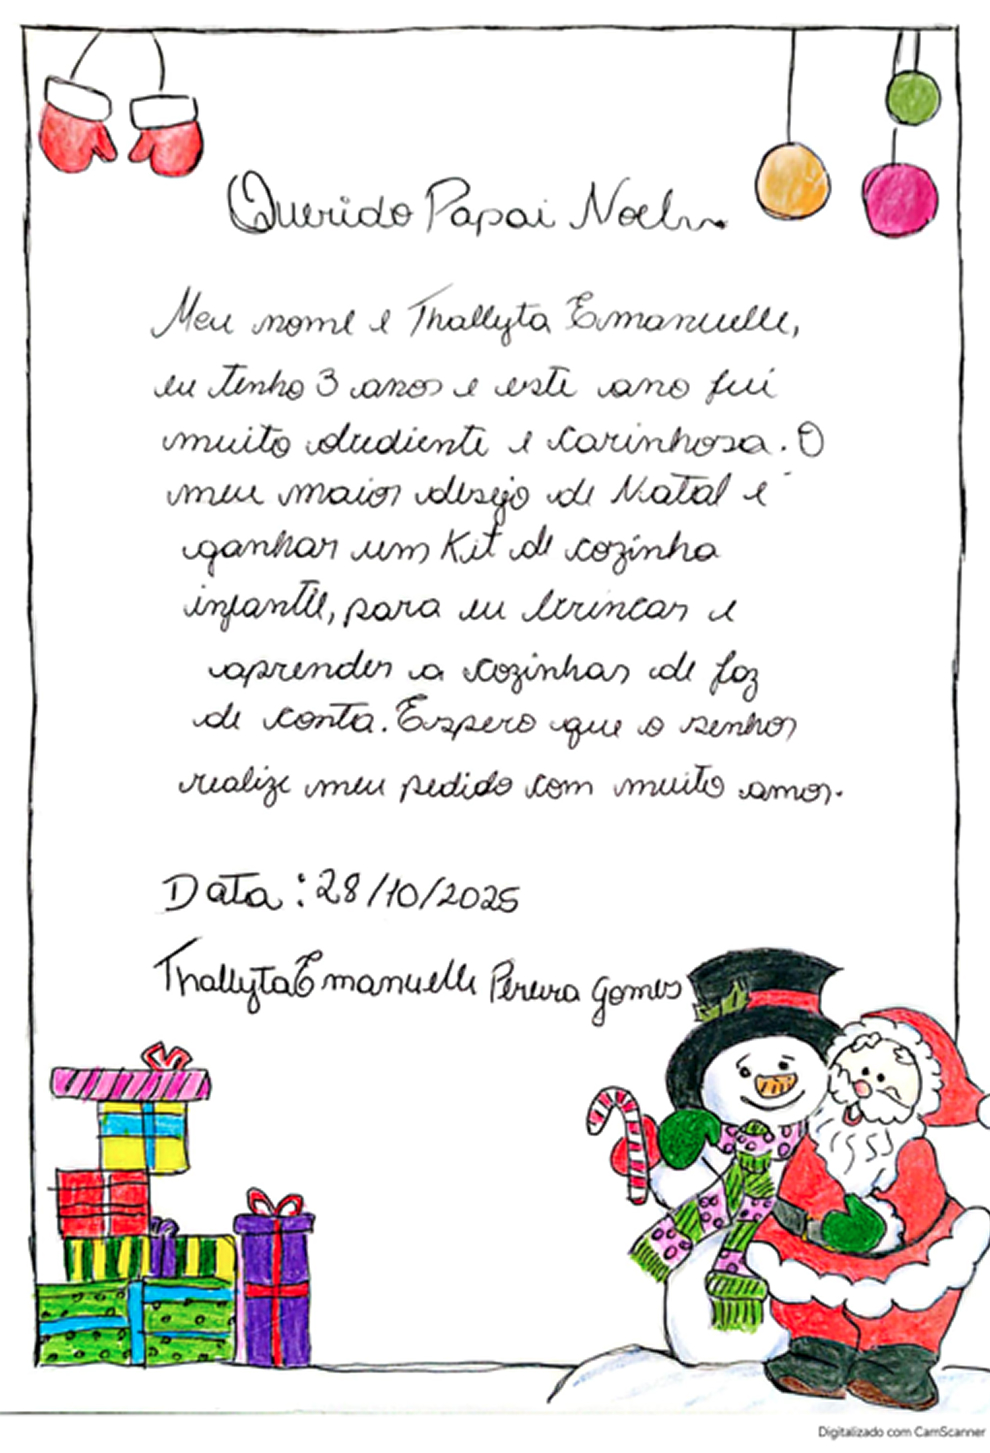 Querido Papai Noel
Meu nome e Thallyta Emanuelle,
eu tenho 3 anos e este ano fui
muito obediente e carinhosa. O
meu maior desejo de Natal é
ganhar um Kit de cozinha
infantil, para eu brincar e
aprender a cozinhar de faz
de conta. Espero que o senhor
realize meu pedido com muito amor.
Data: 28/10/2025
Thallyta Emanuelle Pereira Gomes
Digitalizado com CamScanner